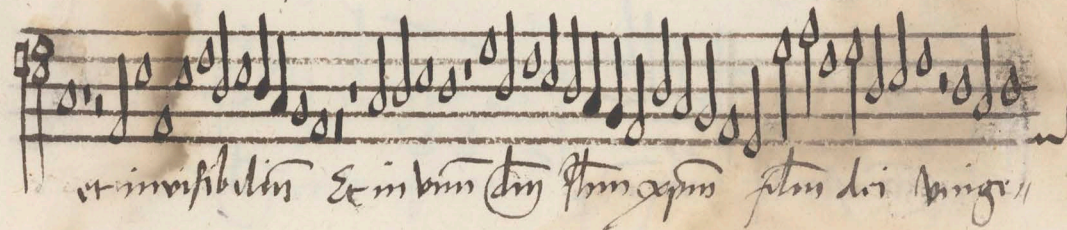 et invisibiliū Et in vnū dm̄ Jhm xpm̄ filiū dei vnige〃